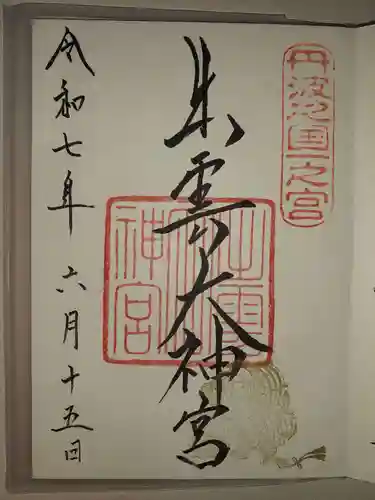 丹波國一之宮
出雲大神宮
出雲大神宮
令和七年 六月十五日